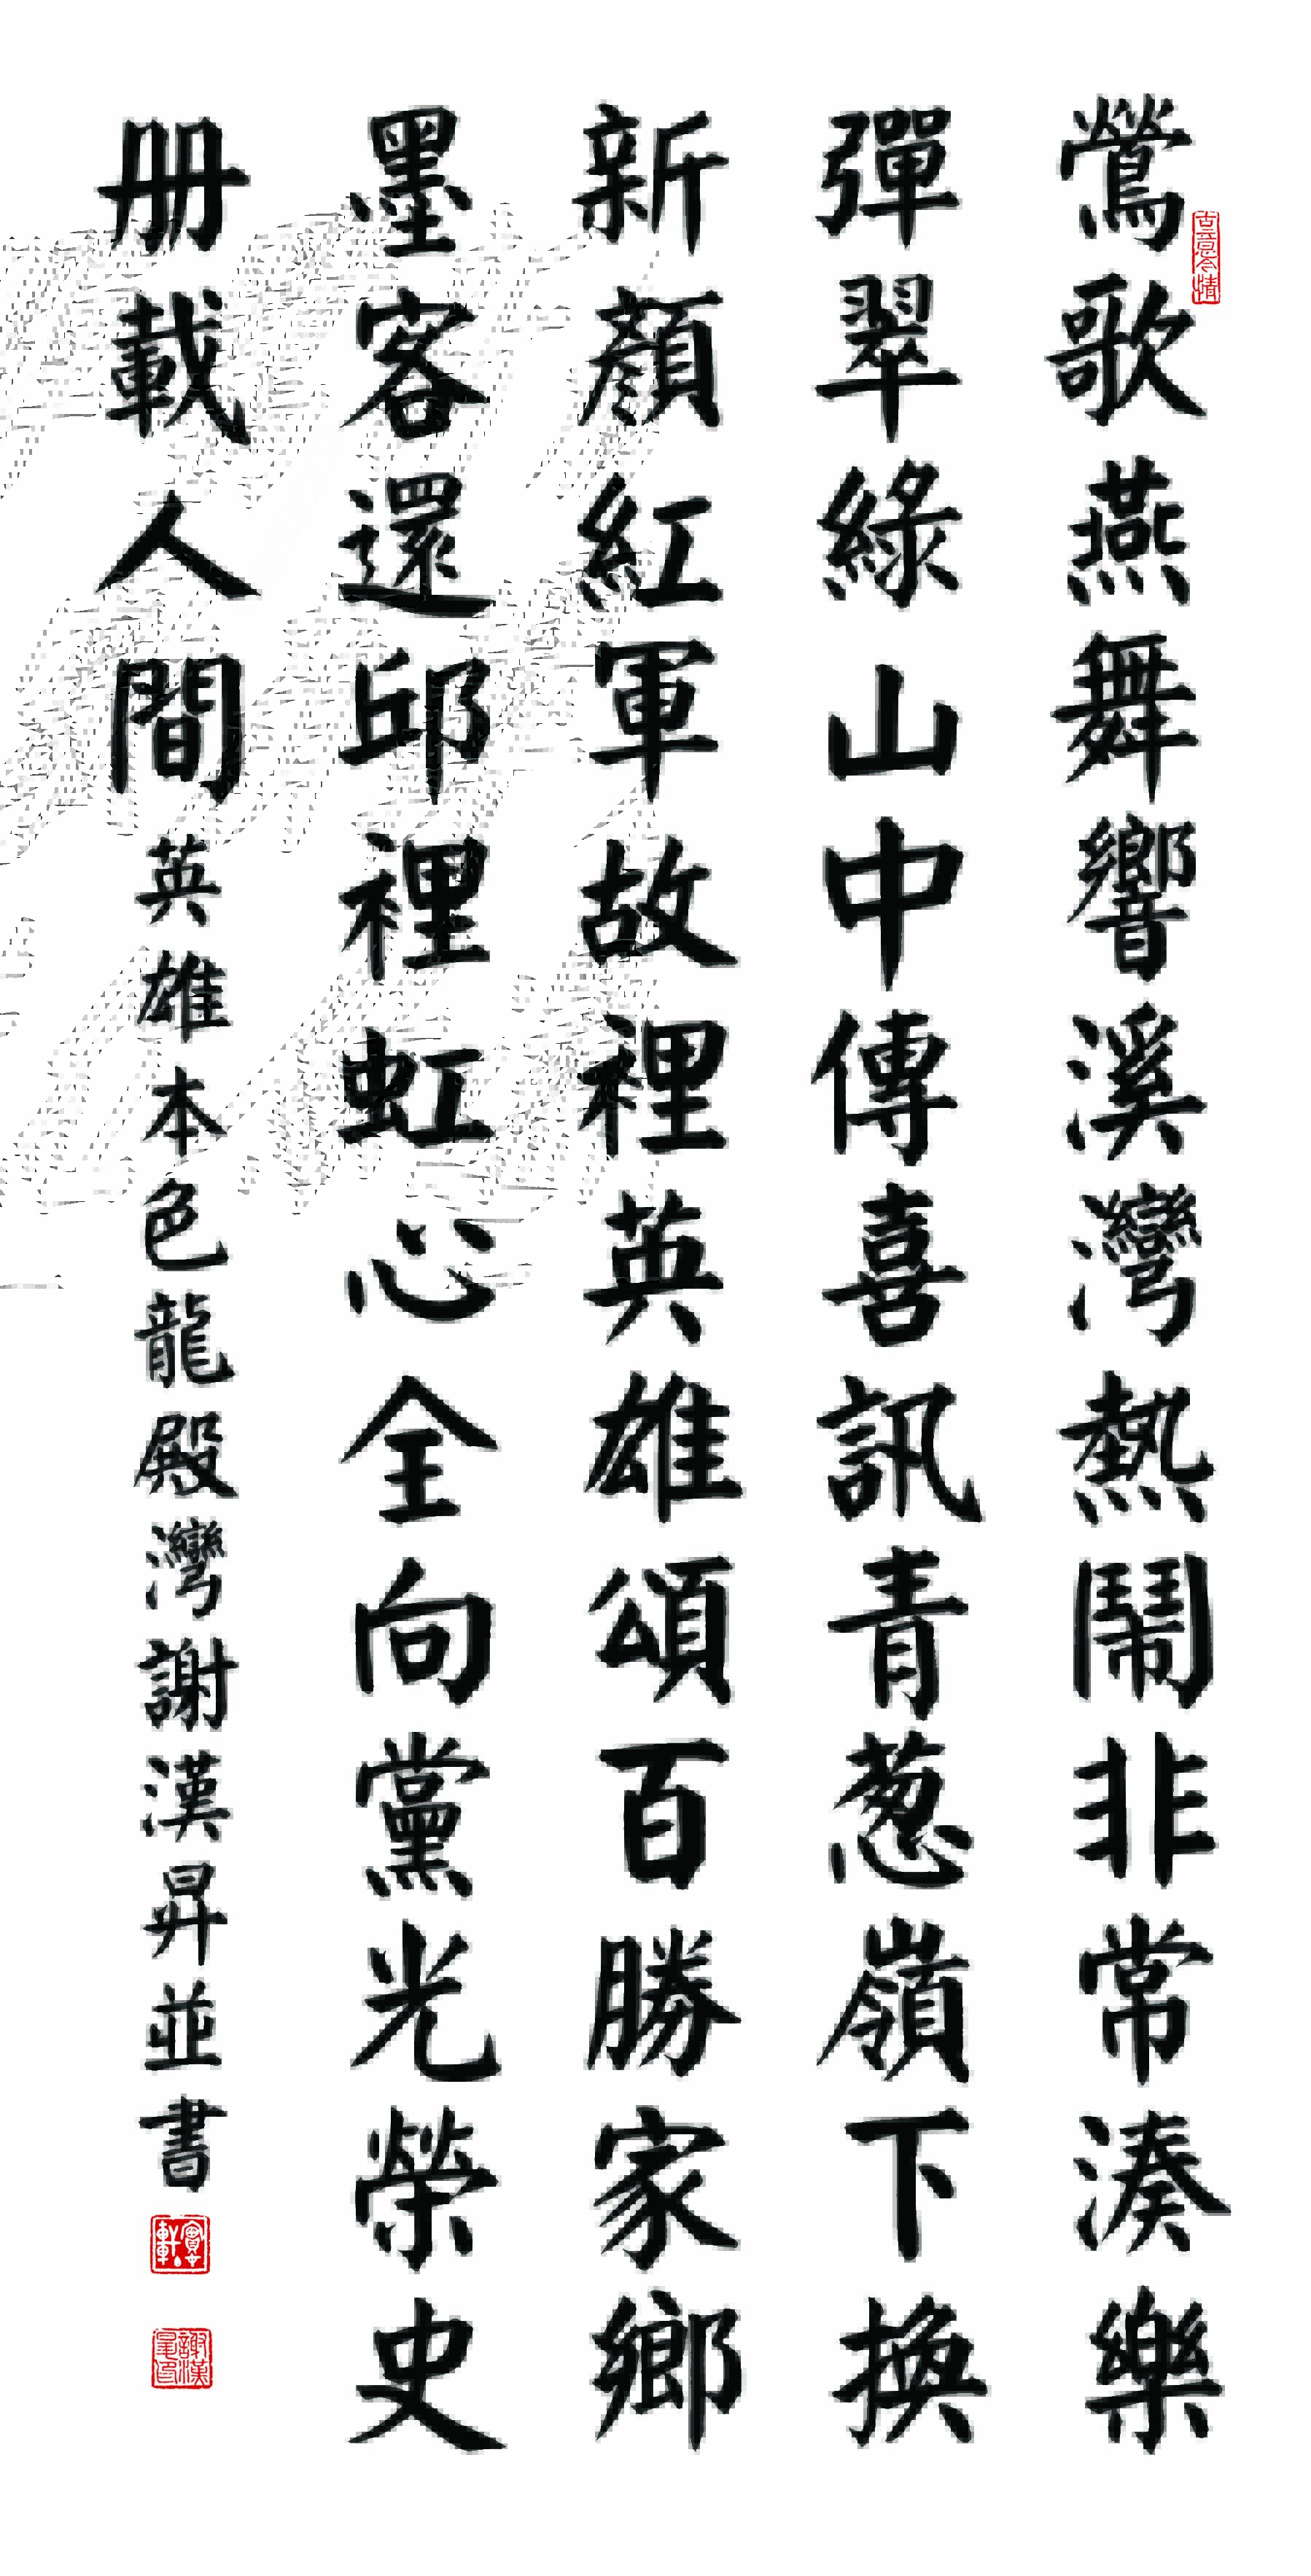 鶯歌燕舞響溪灣熱鬧非常湊樂
彈翠綠山中傳喜訊青葱嶺下換
新顏紅軍故裡英雄頌百勝家鄉
墨客還邱裡虹心全向黨光榮史
册載人間英雄本色龍殿灣謝漢昇並書
古意今情
謝漢昇印